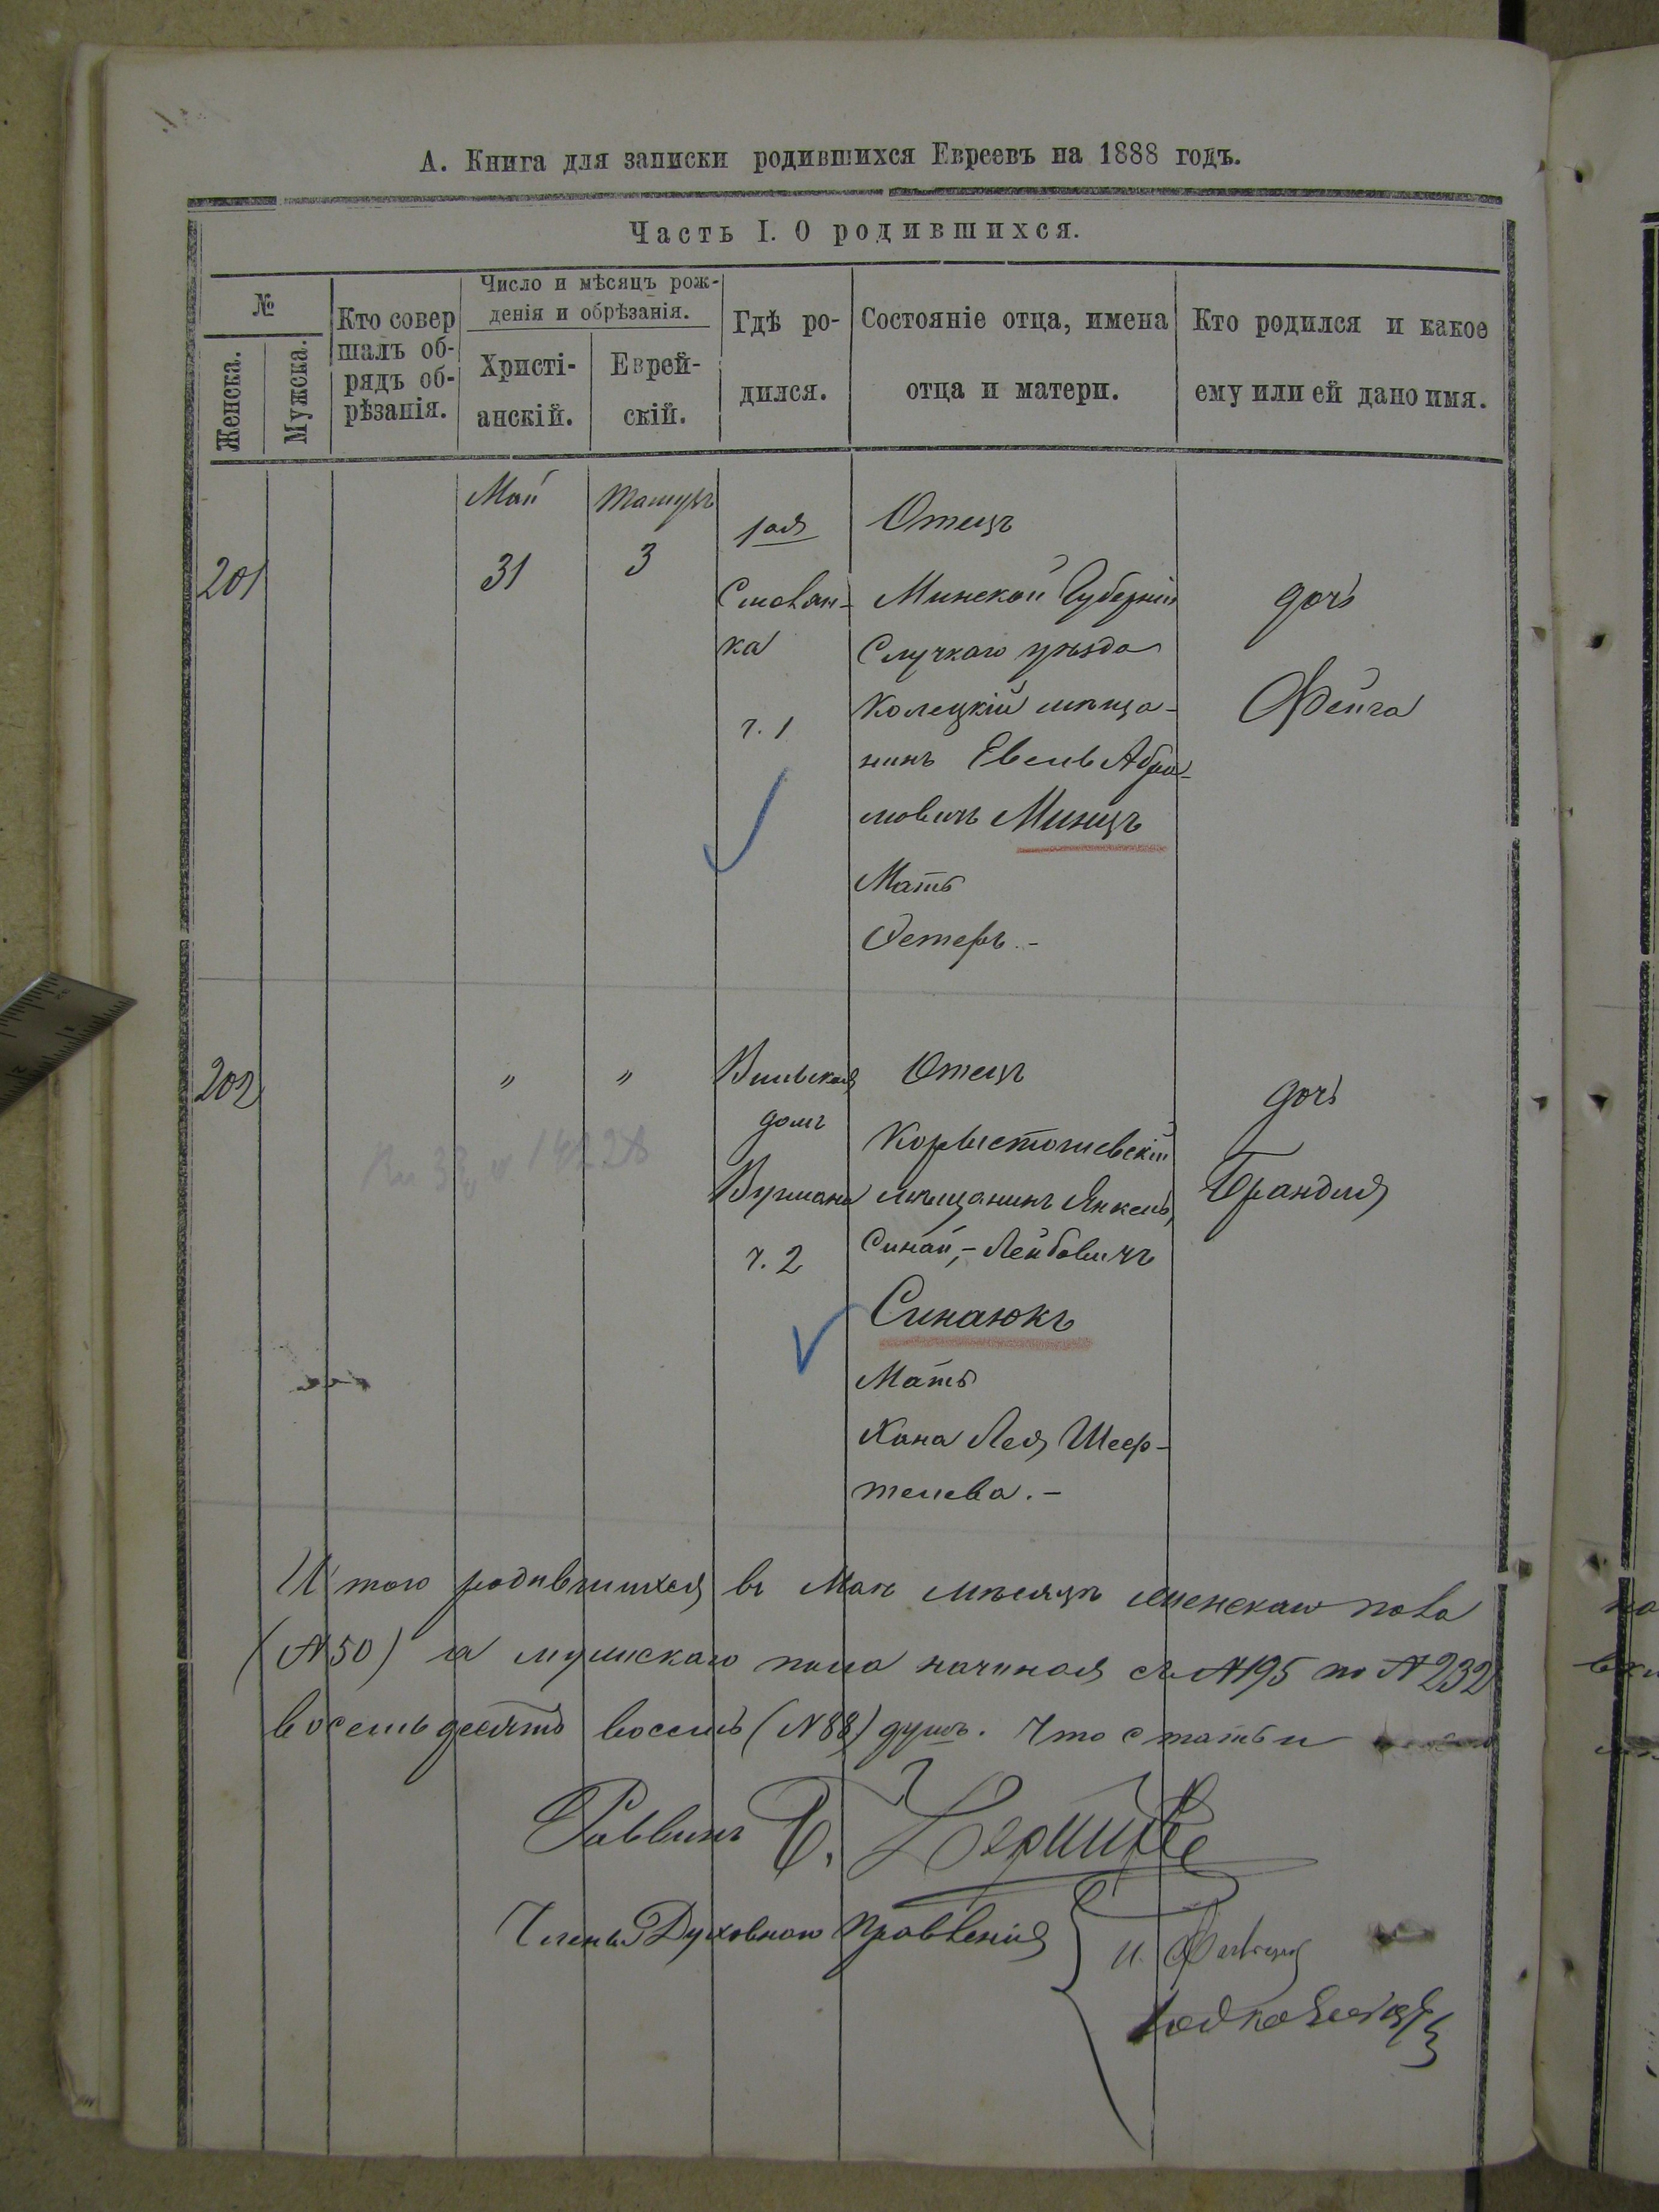 А. Книга для записки родившихся Евреевъ на 1888 годъ.
Часть I. О родившихся.
№
Женска.
Мужска.
Кто совер
шалъ об-
рядъ об-
рѣзанія.
Число и мѣсяцъ рож-
денія и обрѣзанія.
Христі-
анскій.
Еврей-
скій.
Гдѣ ро-
дился.
Состояніе отца, имена
отца и матери.
Кто родился и какое
ему или ей дано имя.
201
Май
31
3
1ая
ка
ч. 1
Отецъ
Минской Губерніи
Слуцкаго уѣзда
мѣща-
нинъ Евель Абра-
мовичъ Минцъ
Мать
Эстеръ. -
дочь
Фейга
202
"
"
домъ
ч. 2
Отецъ
Коростошевскій
мѣщанинъ Янкель,
Синай, - Лейбовичъ
Синаюкъ
Мать
Хана Лея Шеер-
телева. -
дочь
Брандля
Итого родившихся въ Маѣ мѣсяцѣ женскаго пола
(№ 50) а мужскаго пола начиная съ №195 по №232
восемьдесятъ восемь (№88) душъ. Что статьи
Раввинъ
Члены Духовнаго Правленія